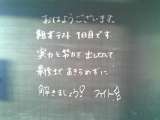 おはようございます。
期末テスト 1日目です
実力と努力を出しきって
最後まであきらめずに
解きましょう! ファイト